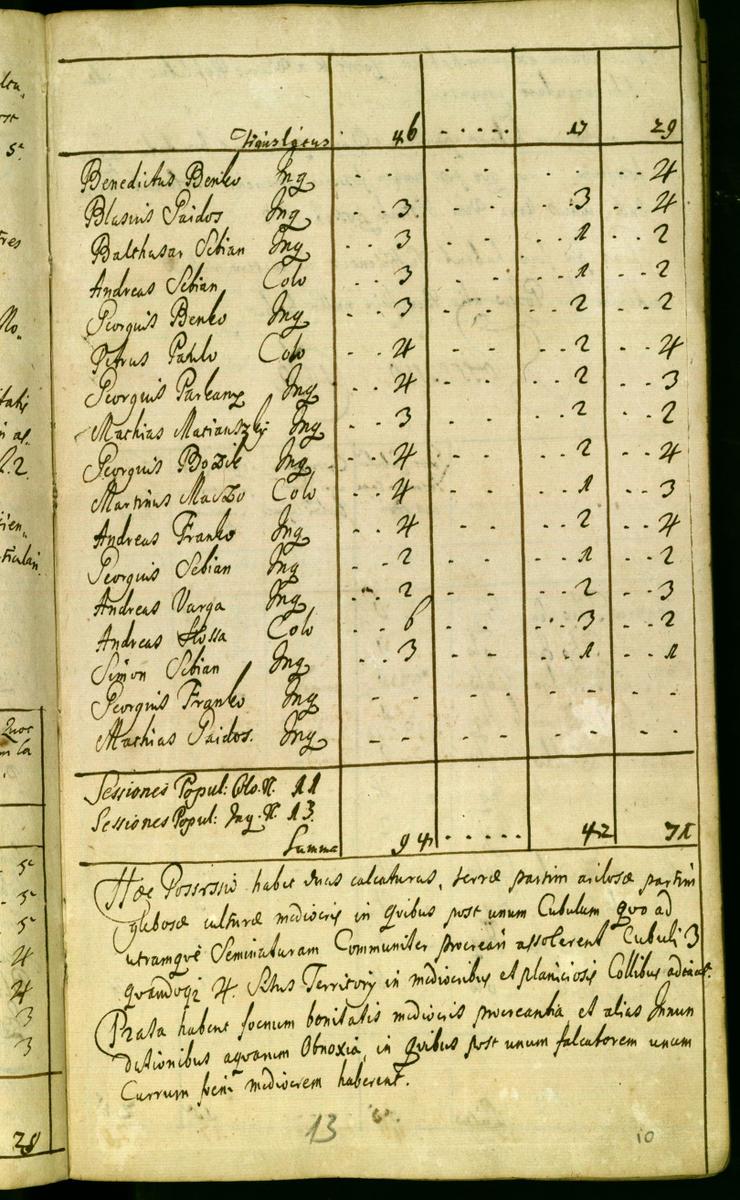 46 . . . . . 17 29
Benedictus Benko Ing - . - - - . . - . . 4
Blasius Paidos Ing . . 3 - - . . 3 . . 4
Balthasar Sebian Ing . . 3 - - . . 1 . . 2
Andreas Sebian Colo . . 3 - - . . 1 . . 2
Georguis Benko Ing . . 3 - - . . 2 . . 2
Petrus Pahlo Colo . . 4 - - . . 2 . . 4
Georguis Ing . . 4 - - . . 2 . . 3
Mathias Ing . . 3 - - . . 2 . . 2
Georguis Bozik Ing . . 4 - - . . 2 . . 4
Martinus Maczo Colo . . 4 - - . . 1 . . 3
Andreas Franko Ing . . 4 - - . . 2 . . 4
Georguis Sebian Ing . . 2 - - . . 1 . . 2
Andreas Varga Ing . . 2 - - . . 2 . . 3
Andreas Colo . . 6 - - . . 3 . . 2
Simon Sebian Ing . . 3 - - . . 1 . . 1
Georguis Franko Ing - - - - - - - - -
Mathias Paidos. Ing - - - - - - - - -
Sessiones Popul: Colo. N. 11
Sessiones Popul: Inq. N. 13.
Summa 94 . . . . . 42 71
Hæc Possessio habet duas calcaturas, terræ partim arilosæ partim
glebosæ culturæ mediocris in quibus post unum Cubulum quo ad
utramque Seminaturam Communiter procreari assolerent Cubuli 3
quandoq; 4. Situs Territory in mediocribus et planiciosis Collibus
Prata habent foenum bonitatis mediocris procreantia et alias Innun
dationibus aquarum Obnoxia, in quibus post unum falcatorem unum
Currum foeni mediocrem haberent.
13
10
5
4
4
3
3
28